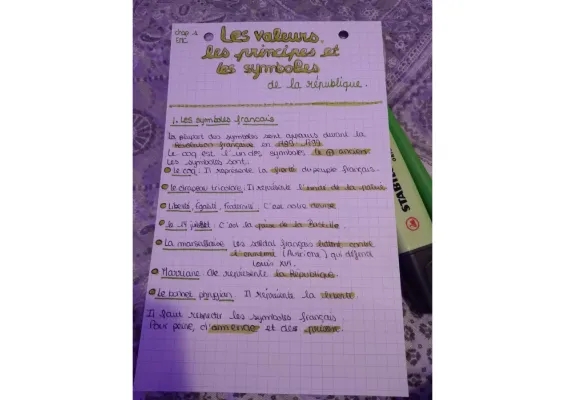 chap 4
EMC
Les valeurs,
les principes et
les symboles
de la république.
1. Les symboles français
La plupart des symboles sont apparus durant la
Révolution française en 1789-1799
Le coq est l'un des symboles le ⊕ ancien
Les symboles sont:
le coq: Il représente la fierté du peuple français.
le drapeau tricolore. Il représente l'unité de la patrie
Liberté, Égalité, Fraternité. C'est notre devise
le 14 juillet. C'est la prise de la Bastille
La marseillaise. Les soldat français battent contre
l'ennemi (Autriche) qui défend
Louis XVI.
Marianne. Elle représente la République.
Le bonnet phrygien. Il représente la liberté.
Il faut respecter les symboles français
Pour peine, d'amende et des prison.
STABILO